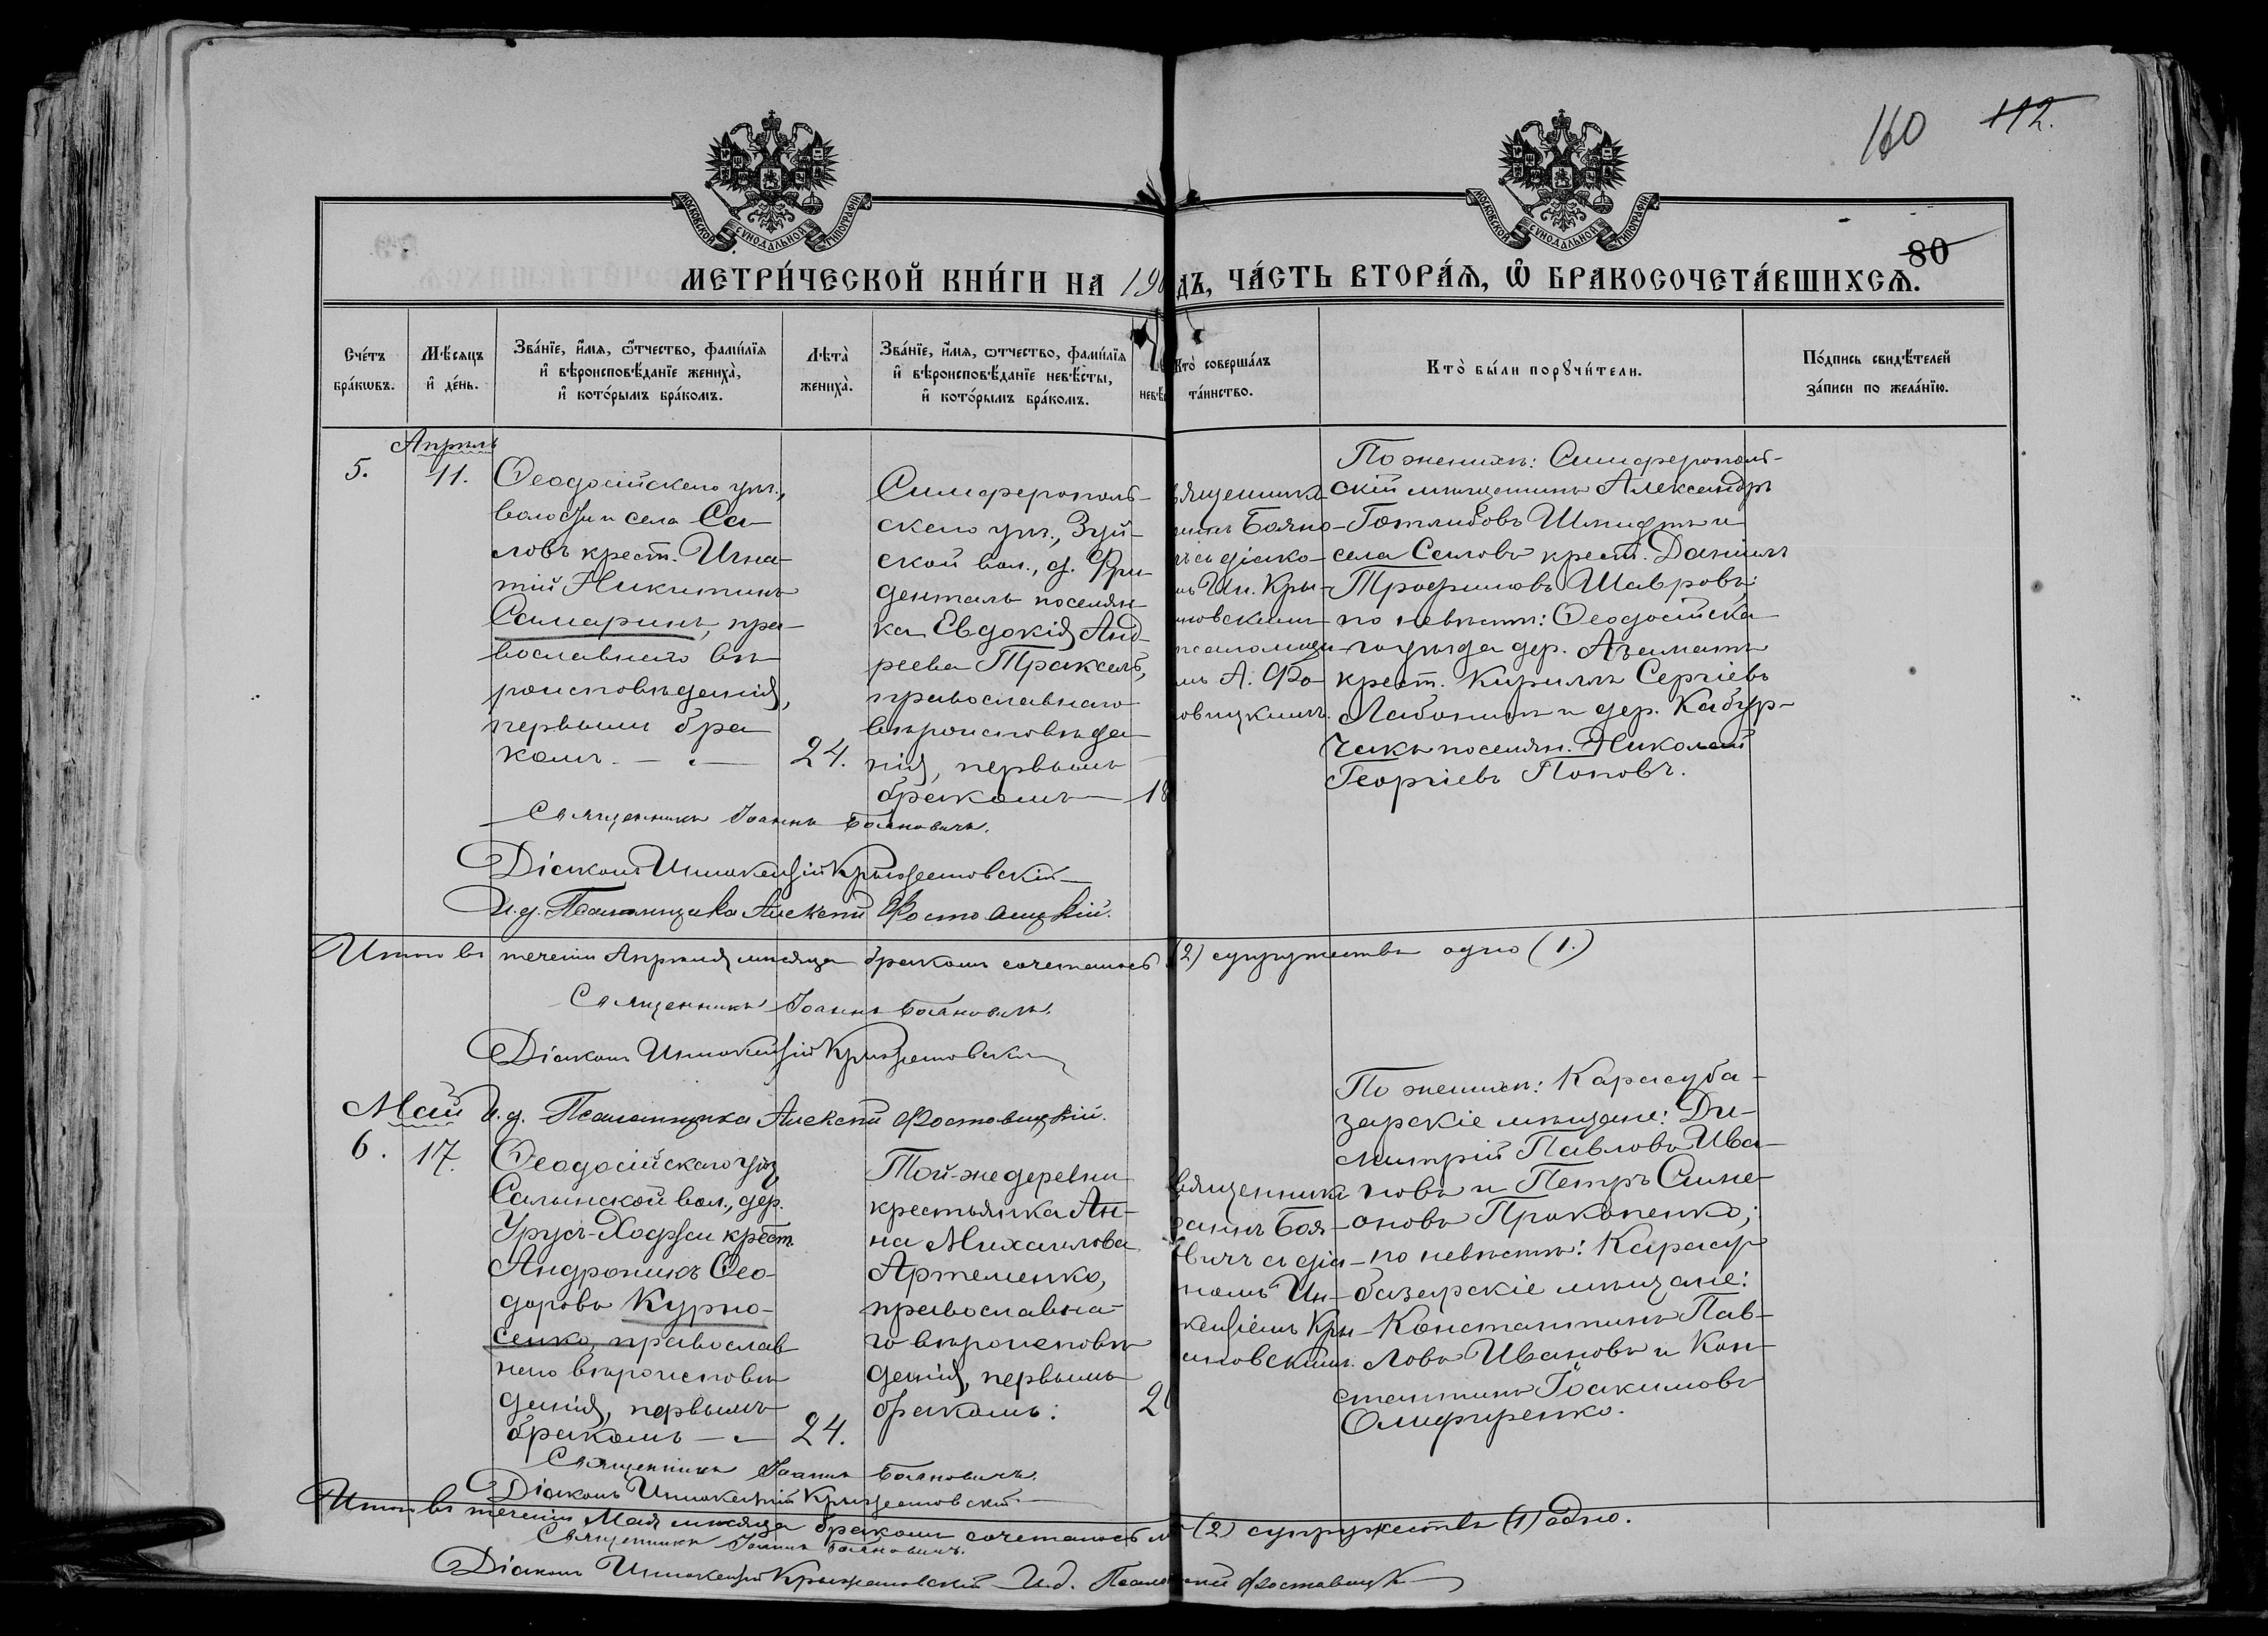 160 112.
МОСКОВСКОЙ СѴНОДАЛЬНОЙ ТИПОГРАФІИ
МОСКОВСКОЙ СѴНОДАЛЬНОЙ ТИПОГРАФІИ
80
МЕТРИ́ЧЕСКОЙ КНИ́ГИ НА 190 ДЪ, ЧА́СТЬ ВТОРА́Ѧ, Ѡ҆ БРАКОСОЧЕТА́ВШИХСѦ.
Сче́тъ бра́кѡвъ.
Мѣ́сѧцъ и҆ де́нь.
Зва́нїе, и҆́мѧ, ѻ҆́тчество, фами́лїѧ и҆ вѣроисповѣ́данїе жениха̀, и҆ кото́рымъ бра́комъ.
Лѣта̀ жениха̀.
Зва́нїе, и҆́мѧ, ѻ҆́тчество, фами́лїѧ и҆ вѣроисповѣ́данїе невѣ́сты, и҆ кото́рымъ бра́комъ.
невѣ
Кто̀ соверша́лъ та́инство.
Кто̀ бы́ли порꙋчи́тели.
По́дпись свидѣ́телей за́писи по жела́нїю.
Апрѣль
5.
11.
Ѳеодосійскаго уѣз.,
волости и села Са-
ловъ крест. Игна-
тій Никитинъ
Самаринъ, пра-
вославнаго вѣ-
роисповѣданія,
первымъ бра-
комъ
24.
Симферополь-
скаго уѣз., Зуй-
ской вол., д. Фри-
денталь поселян-
ка Евдокія Анд-
реева Траксель,
православнаго
вѣроисповѣда-
нія, первымъ
бракомъ
18
вященникъ
аннъ Бояно-
чъ съ діако-
мъ Ин. Кры-
ановскимъ
псаломщи-
мъ А. Фо-
овицкимъ.
По женихѣ: Симферополь-
скій мѣщанинъ Александръ
Готлибовъ Шмидтъ и
села Саловъ крест. Даніилъ
Трофимовъ Шавровъ;
по невѣстѣ: Ѳеодосійска-
го уѣзда дер. Аъаматъ
крест. Кириллъ Сергіевъ
Лабонинъ и дер. Кабур-
чакъ поселян. Николай
Георгіевъ Поповъ.
Священникъ Іоаннъ Бояновичъ.
Діаконъ Иннокентій Крыжановскій
И.д. Псаломщика Алексѣй Фостовицкій.
Итого въ теченіи Апрѣля мѣсяца бракомъ сочеталось (2) супружества одно (1.)
Священникъ Іоаннъ Бояновичъ.
Діаконъ Иннокентій Крыжановскій
И.д. Псаломщика Алексѣй Фостовицкій.
Май
6.
17.
Ѳеодосійскаго уѣз.
Салынской вол., дер.
Урусъ-Ходжи крест.
Андроникъ Ѳео-
доровъ Курно-
сенко, православ-
наго вѣроисповѣ-
данія, первымъ
бракомъ
24.
Той-же деревни
крестьянка Ан-
на Михаилова
Артеменко,
православна-
го вѣроисповѣ-
данія, первымъ
бракомъ:
2
вященникъ
оаннъ Боя-
вичъ съ діа-
номъ Ин-
кентіемъ Кры-
ановскимъ.
По женихѣ: Карасуба-
зарскіе мѣщане: Ди-
митрій Павловъ Ива-
новъ и Петръ Симе-
оновъ Прокопенко;
по невѣстѣ: Карасу-
базарскіе мѣщане:
Константинъ Пав-
ловъ Ивановъ и Кон-
стантинъ Іоакимовъ
Олифиренко.
Священникъ Іоаннъ Бояновичъ.
Діаконъ Иннокентій Крыжановскій
Итого въ теченіи Мая мѣсяца бракомъ сочеталось (2) супружества (1) одно.
Священникъ Іоаннъ Бояновичъ.
Діаконъ Иннокентій Крыжановскій И.д. Псалом Фостовицкій